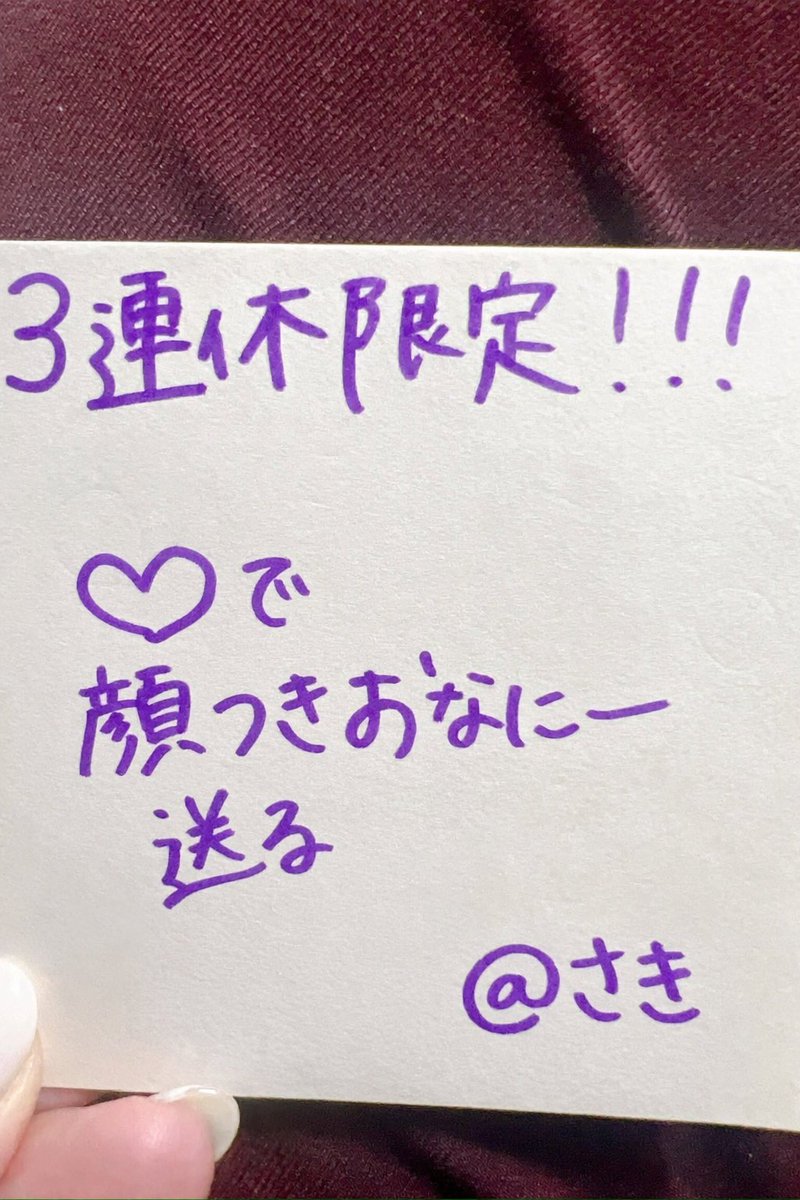 3連休限定!!!
♡で
顔つきおなにー
送る
@さき